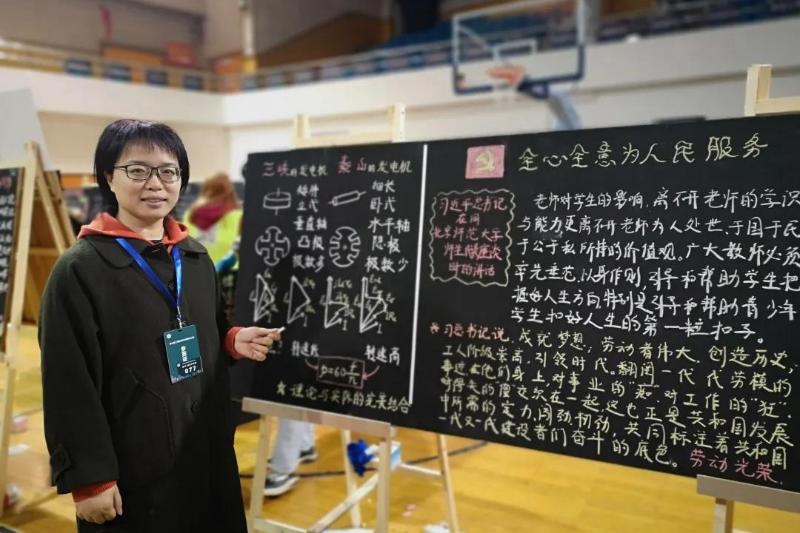 三峡的发电机 燕山的发电机
细长
立式 卧式
垂直轴 水平轴
凸极 隐极
极数多 极数少
转速低 转速高
p=60f/n
☆理论与实际的完美结合
全心全意为人民服务
习近平总书记
在同
北京师范大学
师生代表座谈
时的讲话
老师对学生的影响,离不开老师的学识
与能力,更离不开老师为人处世、于国于民、
于公于私所持的价值观。广大教师必须
率先垂范、以身作则,引导和帮助学生把
握好人生方向,特别是引导和帮助青少年
学生扣好人生的第一粒扣子。
习总书记说,成就梦想;劳动者伟大,创造历史,
工人阶级崇高,引领时代。翻阅一代代劳模的
事迹,在他们身上,对事业的
对工作的"狂",
在一起,这也正是共和国发展
中所需的定力、闯劲、韧劲,共同标注着共和国
一代又一代建设者们奋斗的底色。劳动光荣
077